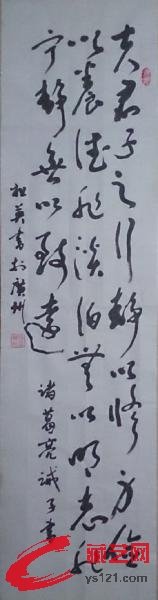 夫君子之行静以修身俭
以養德非淡泊無以明志非
宁静無以致遠 诸葛亮诫子書
松英書於廣州
ys121.com